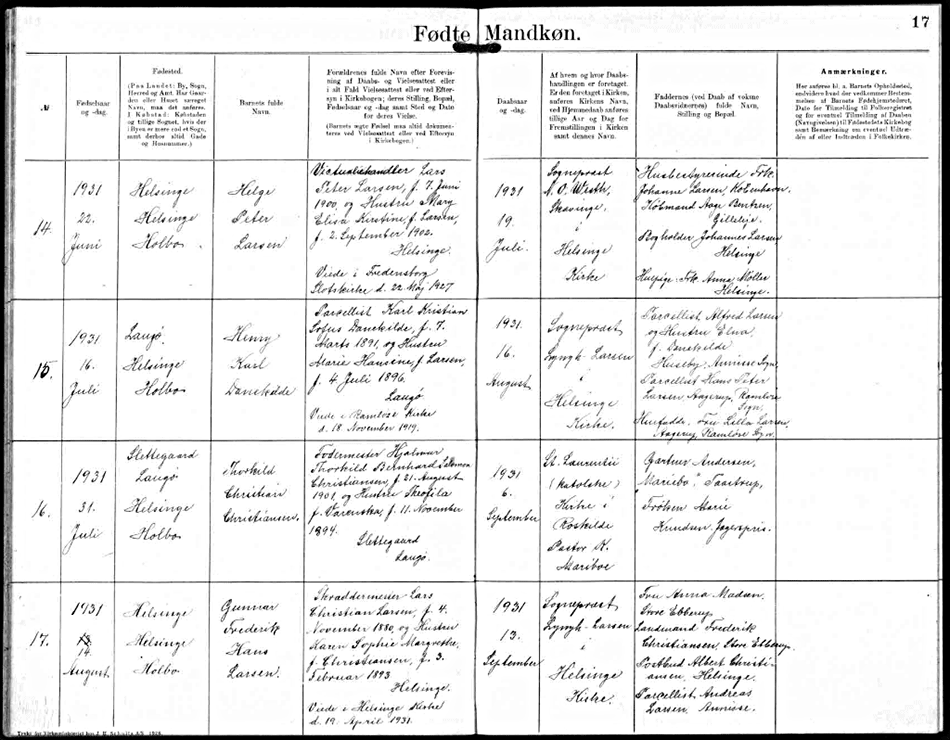 17
Fødte Mandkøn.
№
Fødselsaar
og -dag.
Fødested.
(Paa Landet: By, Sogn,
Herred og Amt. Har Gaar-
den eller Huset særeget
Navn, maa det anføres.
I Købstad: Købstaden
og tillige Sognet, hvis der
i Byen er mere end et Sogn,
samt derhos altid Gade
og Husnummer.)
Barnets fulde
Navn.
Forældrenes fulde Navn efter Forevis-
ning af Daabs- og Vielsesattest eller
i alt Fald Vielsesattest eller ved Efter-
syn i Kirkebogen; deres Stilling, Bopæl,
Fødselsaar og -dag samt Sted og Dato
for deres Vielse.
(Barnets ægte Fødsel maa altid dokumen-
teres ved Vielsesattest eller ved Eftersyn
i Kirkebogen.)
Daabsaar
og -dag.
Af hvem og hvor Daabs-
handlingen er foretaget.
Er den foretaget i Kirken,
anføres Kirkens Navn,
ved Hjemmedaab anføres
tillige Aar og Dag for
Fremstillingen i Kirken
samt dennes Navn.
Faddernes (ved Daab af voksne
Daabsvidnernes) fulde Navn,
Stilling og Bopæl.
Anmærkninger.
Her anføres bl. a. Barnets Opholdssted,
endvidere hvad der vedkommer Bestem-
melsen af Barnets Fødehjemstedsret,
Dato for Tilmelding til Folkeregistret
og for eventuel Tilmelding af Daaben
(Navngivelsen) til Fødestedets Kirkebog
samt Bemærkning om eventuel Udtræ-
den af eller Indtræden i Folkekirken.
14.
1931
22.
Juni
Helsinge
Helsinge
Holbo
Helge
Peter
Larsen
Victualiehandler Lars
Peter Larsen, f. 7. Juni
1900, og Hustru Mary
Eliva Kirstine, f. Larsen,
f. 2. September 1902.
Helsinge.
Viede i Fredensborg
Slotskirke d. 22 Maj 1927
1931
19.
Juli.
Sognepræst
N. O. Westh,
Skævinge.
i
Helsinge
Kirke
Husbestyrerinde Frk.
Johanne Larsen, København.
Købmand Aage Bentzen,
Gilleleje.
Bogholder Johannes Larsen
Helsinge
Huspige Frk. Anna Møller
Helsinge.
15.
1931
16.
Juli
Laugø.
Helsinge
Holbo
Henny
Karl
Danekilde
Parcellist Karl Kristian
Sofus Danekilde, f. 7.
Marts 1891, og Hustru
Marie Hansine, f. Larsen,
f. 4 Juli 1896.
Laugø
Viede i Ramløse Kirke
d. 18. November 1919.
1931.
16.
August
Sognepræst
Lyngh-Larsen
i
Helsinge
Kirke.
Parcellist Alfred Larsen
og Hustru Elna,
f. Danekilde
Huseby, Annisse Sogn,
Parcellist Hans Peter
Larsen, Aagerup, Ramløse
Sogn.
Husfadde, Fru Lilla Larsen,
Aagerup, Ramløse Sogn.
16.
1931
31.
Juli
Slettegaard
Laugø
Helsinge
Holbo
Thorkild
Christian
Christiansen.
Fodermester Hjalmar
Thorkild Bernhard Salomon
Christiansen, f. 21. August
1901, og Hustru Theofila
f. Varenska, f. 11. November
1894.
Slettegaard
Laugø.
1931
6.
September
St. Laurentii
(katolske)
Kirke i
Roskilde
Pastor K.
Mariboe
Gartner Andersen,
"Mariebo", Taastrup,
Frøken Marie
Kundsen, Jægerspris.
17.
1931
14.
August.
Helsinge
Helsinge
Holbo
Gunnar
Frederik
Hans
Larsen.
Skræddermester Lars
Christian Larsen, f. 4.
November 1880 og Hustru
Karen Sophie Margrethe,
f. Christiansen, f. 3.
Februar 1893
Helsinge.
Viede i Helsinge Kirke
d. 19. April 1931.
1931
13.
September
Sognepræst
Lyngh-Larsen
i
Helsinge
Kirke.
Fru Anna Madsen,
Store Ebberup.
Landmand Frederik
Christiansen, Store Ebberup.
Postbud Albert Christi-
ansen, Helsinge.
Parcellist Andreas
Larsen, Annisse.